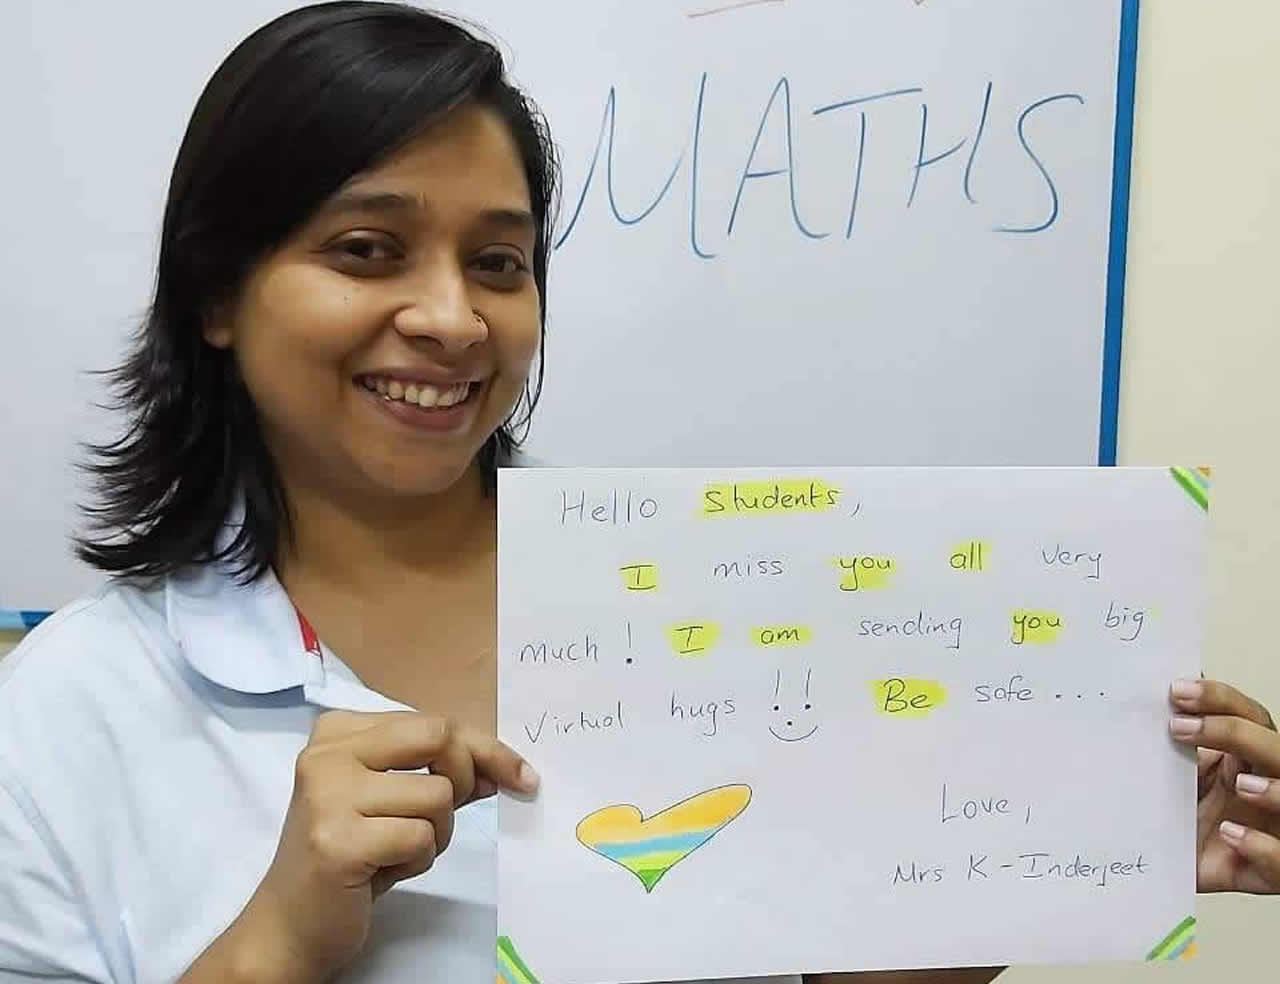 MATHS
Hello Students,
I miss you all very
much! I am sending you big
Virtual hugs !! Be safe...
Love,
Mrs K - Inderjeet